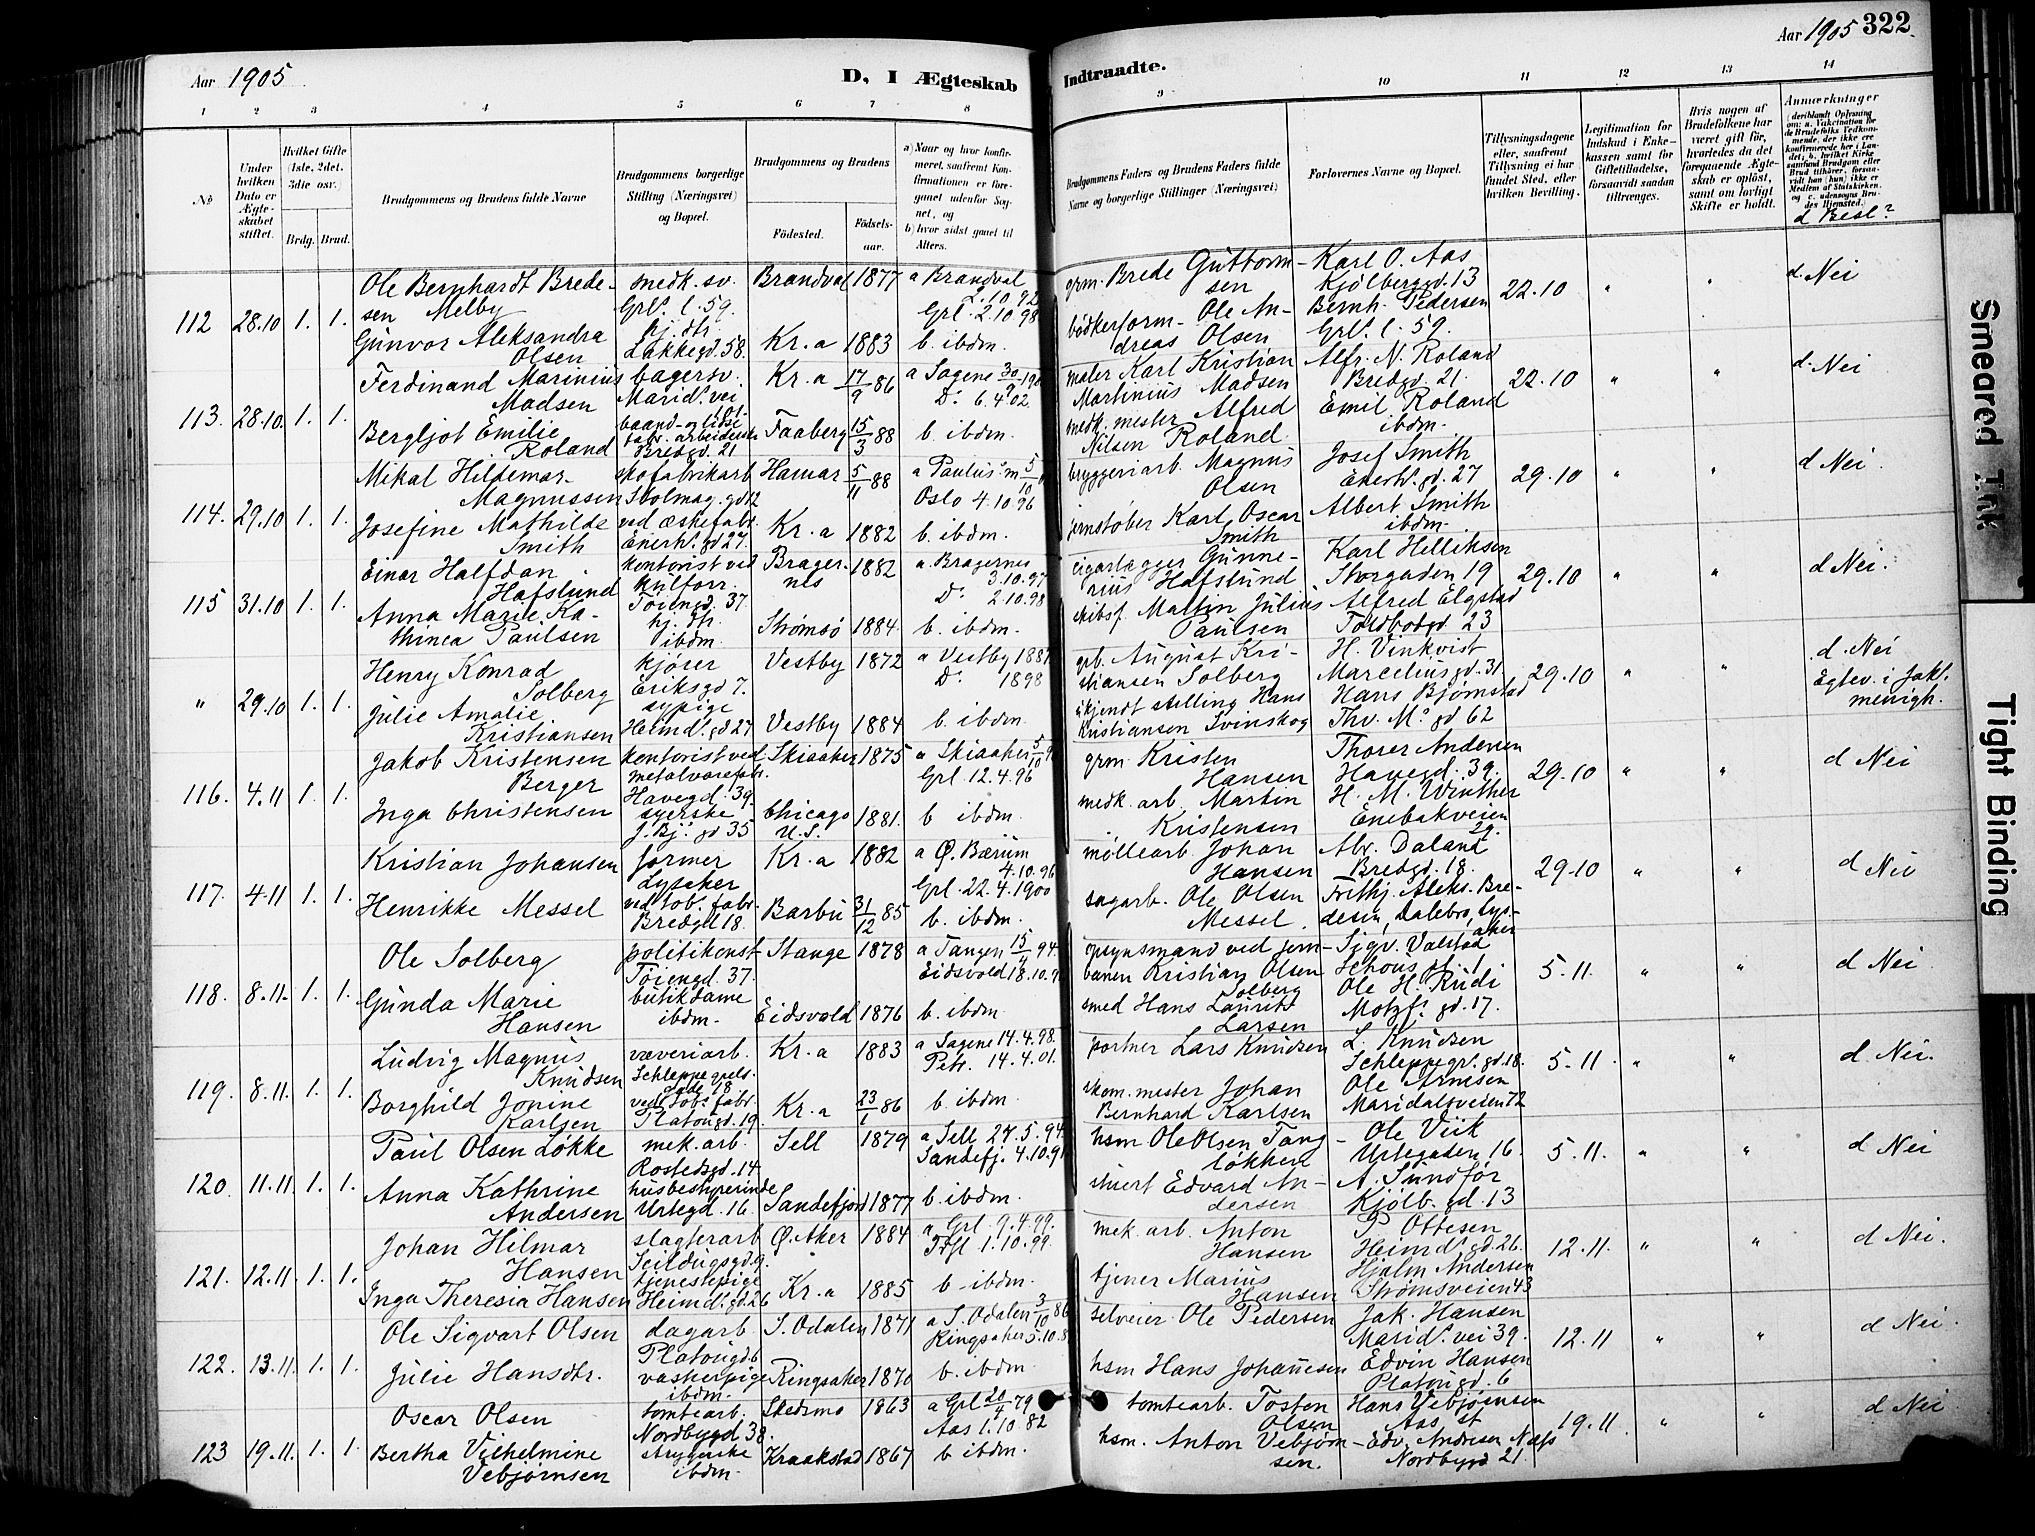 Aar 1905
D, I Ægteskab
Indtraadte.
Aar 1905 322.
1 2 3 4 5 6 7 8 9 10 11 12 13 14
No
Under hvilken Dato er Ægteskabet stiftet.
Hvilket Gifte (1ste, 2det, 3die osv.)
Brdg. Brud.
Brudgommens og Brudens fulde Navne
Brudgommens borgerlige Stilling (Næringsvei) og Bopæl.
Brudgommens og Brudens
Fødested.
Fødselsaar.
a) Naar og hvor konfirmeret, saafremt Konfirmationen er foregaaet udenfor Sognet, og
b) hvor sidst gaaet til Alters.
Brudgommens Faders og Brudens Faders fulde Navne og borgerlige Stillinger (Næringsvei)
Forlovernes Navne og Bopæl.
Tillysningsdagene eller, saafremt Tillysning ei har fundet Sted, efter hvilken Bevilling.
Legitimation for Indskud i Enkekassen samt for Giftetilladelse, forsaavidt saadan tiltrænges.
Hvis nogen af Brudefolkene har været gift før, hvorledes da det foregaaende Ægteskab er opløst, samt om lovligt Skifte er holdt.
Anmærkninger (deriblandt Oplysning om: a. Vakcination for de Brudefolks Vedkommende, der ikke ere konfirmerede her i Landet; b. hvilket Kirkesamfund Brudgom eller Brud tilhører, forsaavidt han (hun) ikke er Medlem af Statskirken, og c. udensogns Brudes Hjemsted.)
d Besl?
112 28.10 1. 1.
Ole Bernhardt Bredesen Melby
medk. sv. Grl. l. 59.
Brandval 1877
a Brandval 2.10.92
Grl. 2.10.98
grm. Brede Guttormsen
Karl O. Aas Kjølberggd. 13
22.10 " "
d. Nei
Gunvor Aleksandra Olsen
hj. dtr. Lakkegd. 58.
Kr.a 1883
b. ibdm.
bødkerform. Ole Andreas Olsen
Bernh. Pedersen Grl. l. 59.
113. 28.10. 1. 1.
Ferdinand Marinius Madsen
bagersv. Marid. vei 101.
Kr.a 17/9 86
a Sagene 30/9 190
Do 6.4.02.
maler Karl Kristian Martinius Madsen
Alfr. N. Roland Bredgd. 21.
22.10 " "
d. Nei
Bergljot Emilie Roland
baand- og lidsefabr. arbeiderske Bredgd. 21
Faaberg 15/3 88
b. ibdm.
medk. mester Alfred Nilsen Roland.
Emil Roland ibdm.
114. 29.10 1. 1.
Mikal Hildemar Magnussen
skofabrikarb. Stolmag. gd 12
Hamar 5/11 88
a Paulus m 5/10
Oslo 4.10.96
bryggeriarb. Magnus Olsen
Josef Smith Enerh. gd. 27
29.10 " "
d Nei.
Josefine Mathilde Smith
ved æskefabr. Enerh. gd 27.
Kr.a 1882
b. ibdm.
jernstøber Karl Oscar Smith
Albert Smith ibdm.
115 31.10 1. 1.
Einar Halfdan Hafslund
kontorist ved kulforr. Tøiengd. 37.
Bragernes 1882
a. Bragernes 3.10.97
Do 2.10.98
cigarlægger Gunnerius Hafslund
Karl Helliksen Storgaden 19
29.10 " "
d Nei.
Anna Marie Kathinca Paulsen
hj. dtr. ibdm.
Strømsø 1884.
b. ibdm.
skibsf. Martin Julius Paulsen
Alfred Elgstad Toldbodgd 23
" 29.10 1. 1.
Henry Konrad Solberg
kjører Eriksgd 7.
Vestby 1872
a Vestby 1887
Do 1898
grb. August Kristiansen Solberg
H. Vinkvist Marcelius gd. 31
29.10 " "
d. Nei
Egtev. i Jak. menigh.
Julie Amalie Kristiansen
sypige Heimd. gd 27
Vestby 1884
b. ibdm.
ukjendt stilling Hans Kristiansen Svinskog
Hans Bjørnstad Thv. M. gd 62
116. 4.11 1. 1.
Jakob Kristensen Berger
kontorist ved metalvarefabr. Havegd. 39.
Skiaaker 1875
a Skiaaker 5/10 9
Grl. 12.4.96
grm. Kristen Hansen
Thorer Andersen Havegd. 39.
29.10 " "
d Nei
Inga Christensen
syerske J. Bj. gd 35
Chicago U.S. 1881.
b ibdm.
medk. arb. Martin Kristensen
H. M. Winther Enebakveien 29.
117. 4.11 1. 1.
Kristian Johansen
former Lysaker
Kr.a 1882
a Ø. Bærum 4.10.96
Grl. 22.4.1900
møllearb. Johan Hansen
Abr. Daland Bredgd. 18.
29.10 " "
d Nei
Henrikke Messel
ved tob. fabr. Bredgd 18.
Barbu 31/12 85
b. ibdm.
sagarb. Ole Olsen Messel.
Frithj. Aleks. Bredesen, Dalebro, Lysaker
118. 8.11. 1. 1.
Ole Solberg
politikonst. Tøiengd. 37.
Stange 1878
a Tangen 15/4 94.
Eidsvold 18.10.9
opsynsmand ved jernbanen Kristian Olsen Solberg
Sigv. Valstad Schous pl. 1
5.11. " "
d Nei
Gunda Marie Hansen
butikdame ibdm.
Eidsvold 1876
b. ibdm.
smed Hans Laurits Larsen
Ole H. Rudi Motzf. gd. 17.
119. 8.11. 1. 1.
Ludvig Magnus Knudsen
væveriarb. Schleppegrels gade 18.
Kr.a 1883
a Sagene 14.4.98.
Petr. 14.4.01.
portner Lars Knudsen
L. Knudsen Schleppegrl. gd. 18.
5.11 " "
d. Nei.
Borghild Jonine Karlsen
ved tob. fabr. Platougd. 19.
Kr.a 23/1 86
b. ibdm.
skom. mester Johan Bernhard Karlsen
Ole Arnesen Maridalsveien 72
120. 11.11. 1. 1.
Paul Olsen Løkke
mek. arb. Rostedsgd. 14.
Sell 1879
a Sell 27.5.94.
Sandefj. 4.10.9
hsm Ole Olsen Tangløkken
Ole Viik Urtegaden 16.
5.11. " "
d Nei
Anna Kathrine Andersen
husbestyrerinde Urtegd. 16.
Sandefjord 1877
b. ibdm.
stuert Edvard Andersen
A. Sundfør Kjølb. gd. 13
121. 12.11. 1. 1.
Johan Hilmar Hansen
slagterarb. Seildugsgd. 9.
Ø. Aker 1884
a Grl. 9.4.99.
Tøfl. 1.10.99.
mek. arb. Anton Hansen
P. Ottesen Heimd. gd. 26.
12.11. " "
d Nei.
Inga Theresia Hansen
tjenestepige Heimd. gd. 26
Kr.a 1885
b. ibdm.
tjener Marius Hansen
Hjalm. Andersen Strømsveien 43
122. 13.11. 1. 1.
Ole Sigvart Olsen
dagarb. Platougd. 6
S. Odalen 1871
a S. Odalen 3/10 86
Ringsaker 5.10.8
selveier Ole Pedersen
Jak. Hansen Marid. vei 39.
12.11 " "
d Nei.
Julie Hansdtr.
vaskerpige ibdm.
Ringsaker 1870
b. ibdm.
hsm Hans Johannesen
Edvin Hansen Platou gd. 6
123 19.11. 1. 1.
Oscar Olsen
tomtearb. Nordbygd 38.
Skedsmo 1863
a Grl 20/4 79
Aas 1.10.82
tomtearb. Tosten Olsen
Hans Vebjørnsen Aas st.
19.11. " "
d Nei
Bertha Vilhelmine Vebjørnsen
strygerske ibdm.
Kraakstad 1867
b ibdm.
hsm. Anton Vebjørnsen.
Edv. Andresen Næss Nordbygd 21.
Smeared Ink
Tight Binding